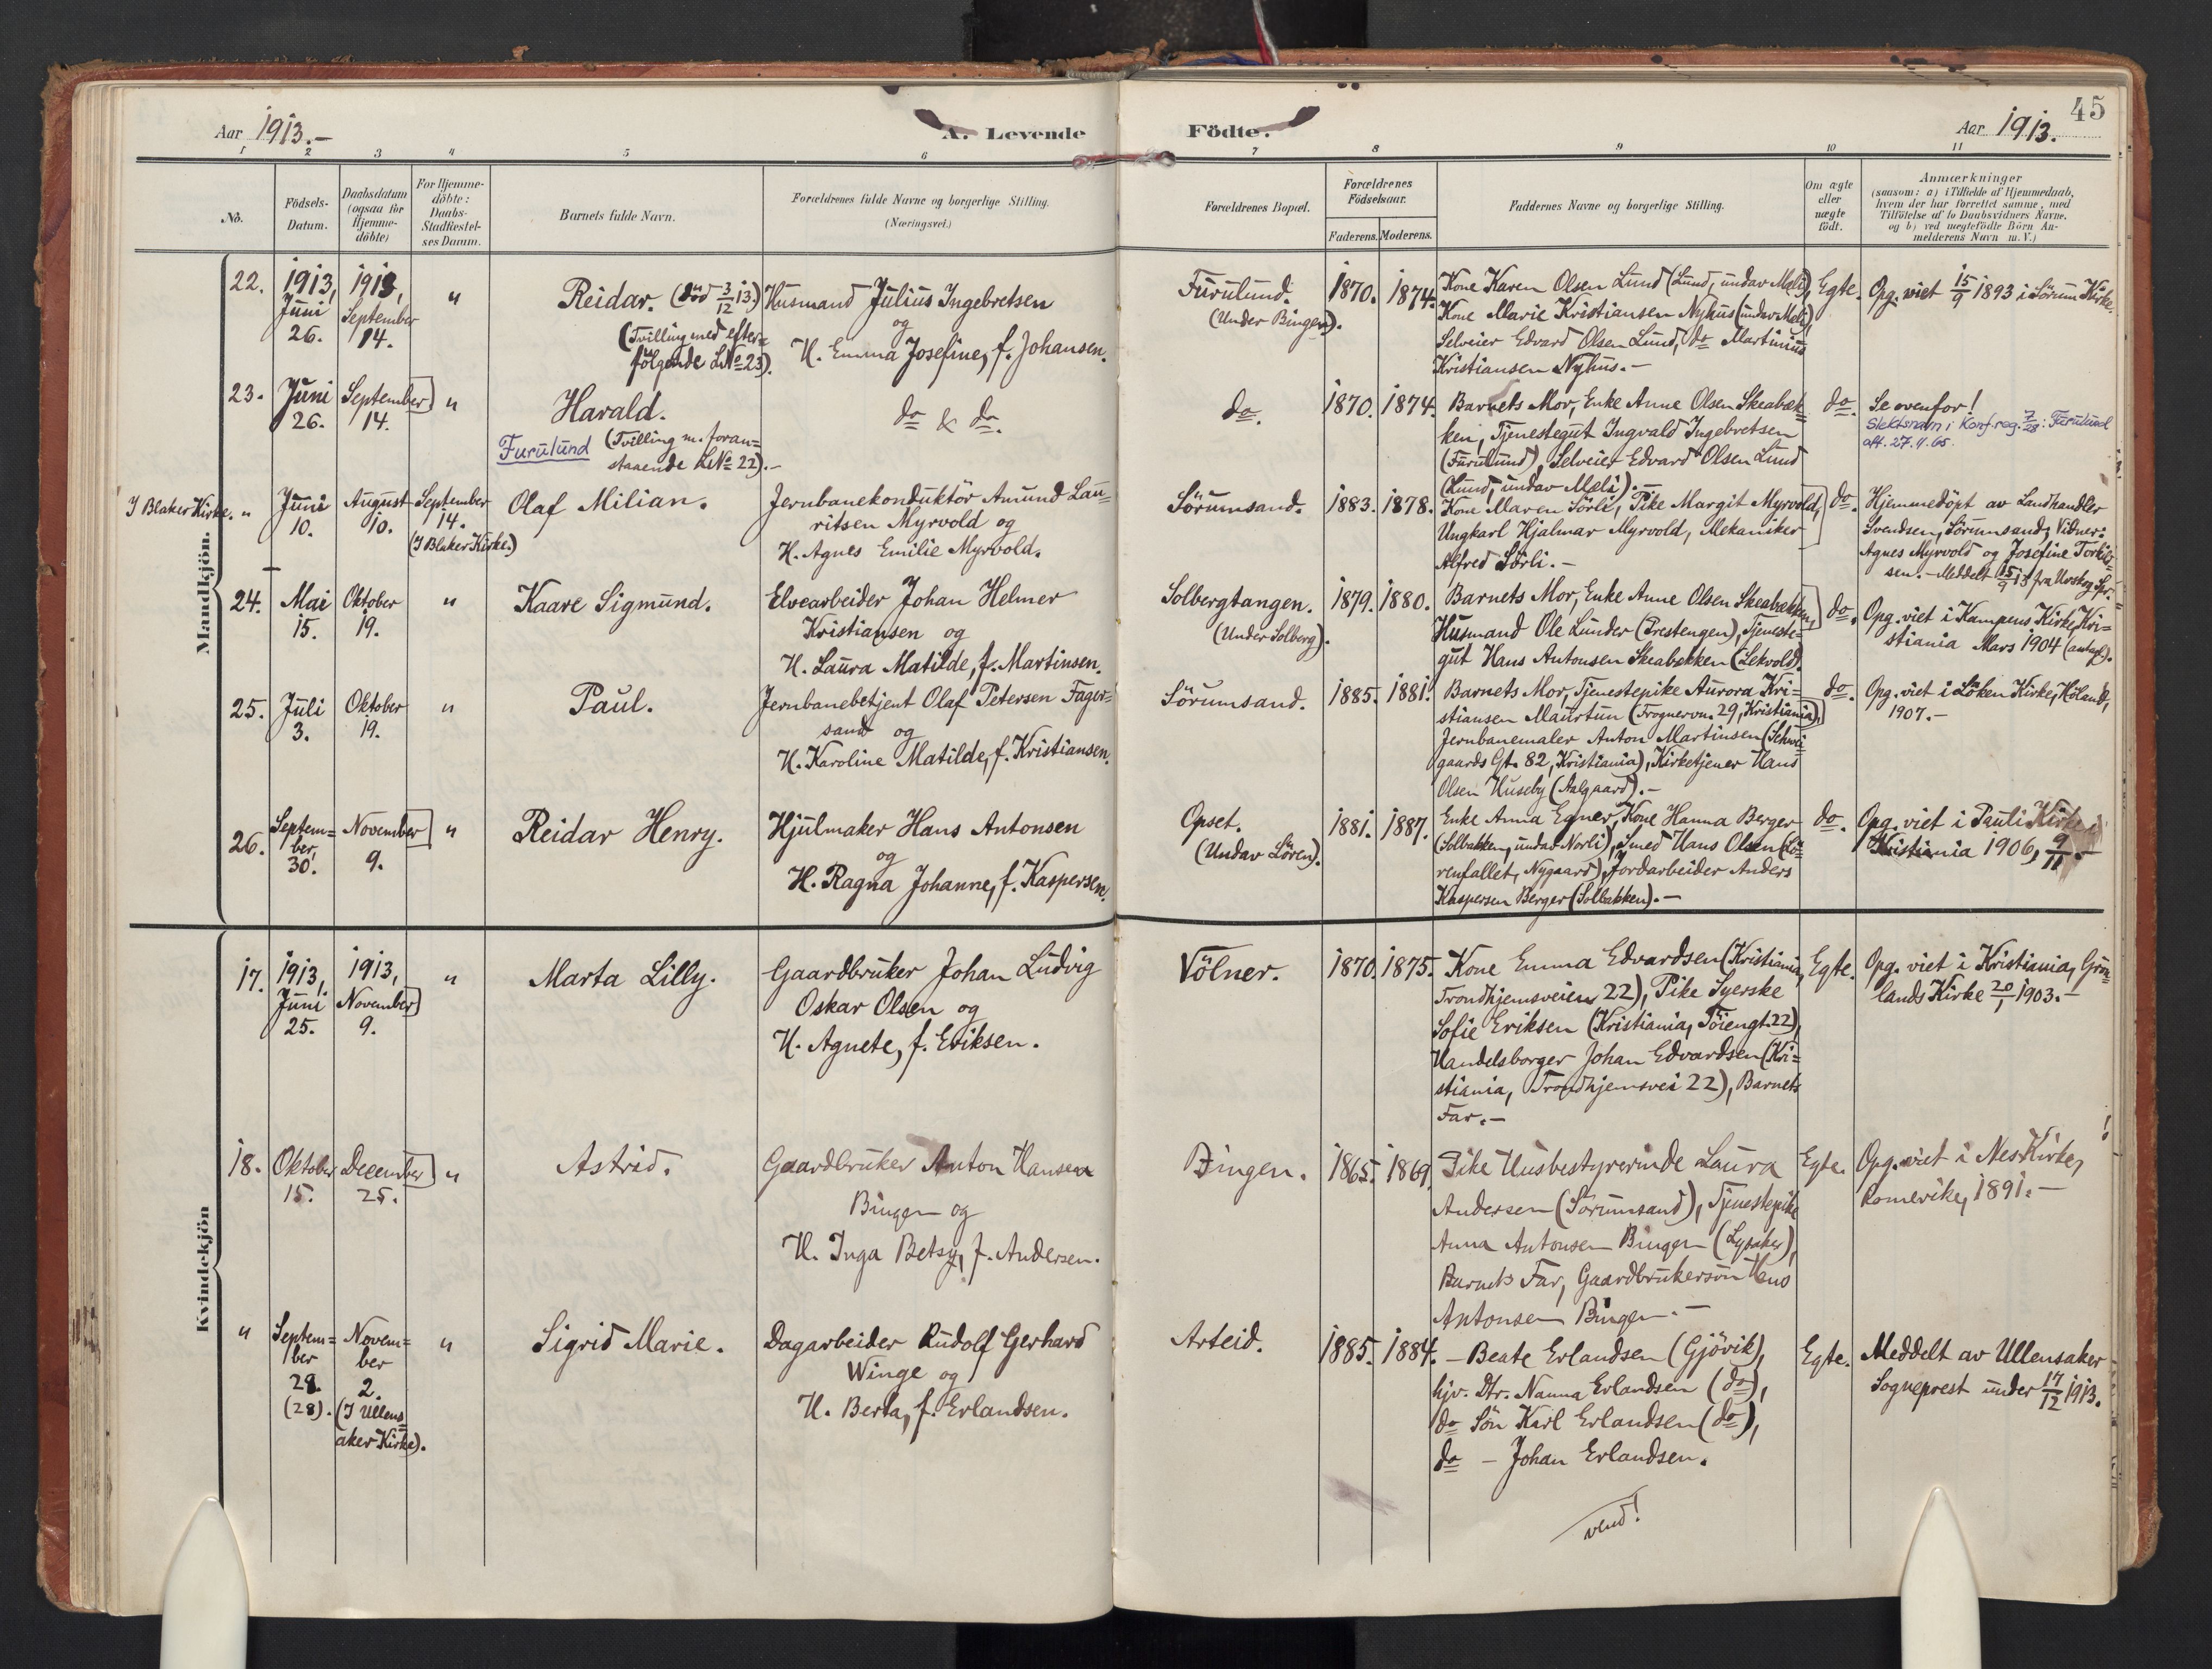 45
Aar 1913.–
A. Levende Födte.
Aar 1913.
1 2 3 4 5 6 7 8 9 10 11
No.
Födsels-
Datum.
Daabsdatum
(ogsaa for
Hjemme-
döbte)
For Hjemme-
döbte:
Daabs-
Stadfæstel-
ses Datum.
Barnets fulde Navn.
Forældrenes fulde Navne og borgerlige Stilling.
(Næringsvei.)
Forældrenes Bopæl.
Forældrenes
Födselsaar.
Faderens. Moderens.
Faddernes Navne og borgerlige Stilling.
Om ægte
eller
uægte
födt.
Anmærkninger
(saasom: a) i Tilfælde af Hjemmedaab,
hvem der har forrettet samme, med
Tilföielse af to Daabsvidners Navne.
og b) ved uægtefödte Börn An-
melderens Navn m. V.)
Mandkjön.
22.
1913,
Juni
26.
1913,
September
14.
"
Reidar. (död 3/12 13.)
(Tvilling med efter=
fölgende LNo 23).
Husmand Julius Ingebretsen
og
H. Emma Josefine, f. Johansen.
Furulund.
(Under Bingen).
1870.
1874.
Kone Karen Olsen Lund (Lund, undav Mæli),
Kone Marie Kristiansen Nyhus (undav Mæli),
Selveier Edvard Olsen Lund, do Martinius
Kristiansen Nyhus.–
Egte.
Opg. viet 15/9 1893 i Sörum Kirke.
23.
Juni
26.
September
14.
"
Harald.
Furulund
(Tvilling m. foran=
staaende LNo 22).–
do & do.
do.
1870.
1874.
Barnets Mor, Enke Anne Olsen Skeabæk=
ken, Tjenestegut Ingvald Ingebretsen
(Furulund), Selveier Edvard Olsen Lund
(Lund, undav Mæli).–
do.
Se ovenfor!
Slektsnavn i Konf.reg. 7/28: Furulund
att. 27.11.65.
I Blaker Kirke. "
Juni
10.
August
10.
September
14.
(I Blaker Kirke.)
Olaf Milian.
Jernbanekonduktör Amund Lau=
ritsen Myrvold og
H. Agnes Emilie Myrvold.
Sörumsand.
1883.
1878.
Kone Maren Sörli, Pike Margit Myrvold,
Ungkarl Hjalmar Myrvold, Mekaniker
Alfred Sörli.–
do.
Hjemmedöpt av Landhandler
Svendsen, Sörumsand; Vidner:
Agnes Myrvold og Josefine Torkild=
sen.– Meddelt 15/9 13 fra Urskog Spr.
24.
Mai
15.
Oktober
19.
"
Kaare Sigmund.
Elvearbeider Johan Helmer
Kristiansen og
H. Laura Matilde, f. Martinsen.
Solbergtangen.
(Under Solberg).
1879.
1880.
Barnets Mor, Enke Anne Olsen Skeabækken,
Husmand Ole Lunder (Prestengen), Tjeneste=
gut Hans Antonsen Skeabækken (Lekvold).
do.
Opg. viet i Kampens Kirke, Kri=
stiania Mars 1904 (antagl.).
25.
Juli
3.
Oktober
19.
"
Paul.
Jernbanebetjent Olaf Petersen Fager=
sand og
H. Karoline Matilde, f. Kristiansen.
Sörumsand.
1885.
1881.
Barnets Mor, Tjenestepike Aurora Kri=
stiansen Maurtun (Frognervn. 29, Kristiania),
Jernbanemaler Anton Martinsen (Schwei=
gaards Gt. 82, Kristiania), Kirketjener Hans
Olsen Huseby (Aalgaard).–
do.
Opg. viet i Löken Kirke, Höland,
1907.–
26.
Septem=
ber,
30.
November
9.
"
Reidar Henry.
Hjulmaker Hans Antonsen
og
H. Ragna Johanne, f. Kaspersen.
Opset.
(Undav Lören).
1881.
1887.
Enke Anna Egner, Kone Hanna Berger
(Solbakken, undav Norli), Smed Hans Olsen (Lö=
renfallet, Nygaard), Jordarbeider Anders
Kaspersen Berger (Solbakken).–
do.
Opg. viet i Pauli Kirke i
Kristiania 1906, 9/11.–
Kvindekjön
17.
1913,
Juni
25.
1913,
November
9.
"
Marta Lilly.
Gaardbruker Johan Ludvig
Oskar Olsen og
H. Agnete, f. Eriksen.
Völner.
1870.
1875.
Kone Emma Edvardsen (Kristiania,
Trondhjemsveien 22), Pike Syerske
Sofie Eriksen (Kristiania, Töiengt. 22),
Handelsborger Johan Edvardsen (Kri=
stiania, Trondhjemsvei 22), Barnets
Far.–
Egte.
Opg. viet i Kristiania, Grön=
lands Kirke 20/1 1903.–
18.
Oktober
15.
December
25.
"
Astrid.
Gaardbruker Anton Hansen
Bingen og
H. Inga Betsy, f. Andersen.
Bingen.
1865.
1869.
Pike Husbestyrerinde Laura
Andersen (Sörumsand), Tjenestepike
Anna Antonsen Bingen (Lysaker),
Barnets Far, Gaardbrukersön Hans
Antonsen Bingen.–
Egte.
Opg. viet i Nes Kirke,
Romerike, 1891.–
"
Septem=
ber
28.
(28).
Novem=
ber
2.
(I Ullens=
aker Kirke).
"
Sigrid Marie.
Dagarbeider Rudolf Gerhard
Winge og
H. Berta, f. Erlandsen.
Arteid.
1885.
1884.
– Beate Erlandsen (Gjövik),
hjv. Dtr. Nanna Erlandsen (do),
do Sön Karl Erlandsen (do),
do – Johan Erlandsen.
Egte.
Meddelt av Ullensaker
Sogneprest under 17/12 1913.
vend!